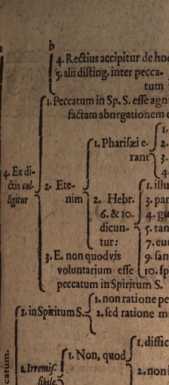 b
4. Rectius accipitur de hoc
5. alii disting. inter pecca-
tum
1. Peccatum in Sp. S. esse agn
factam abnegationem
1.
1. Pharisæi e- 2.
rant 3.
4.
4. Ex di-
ctis col-
ligitur
2. Ete-
nim
1. illu
2. Hebr. 3. par
6. & 10. 4. gu
dicun- 5. tan
tur: 7. eu
3. E. non quodvis 9. san
voluntarium esse 10. sp
peccatum in Spiritum S.
1. non ratione pe
2. in Spiritum S. 2. sed ratione m
1. diffic
1. Non, quod
2. Irremis- 2. non
sibile
catum.